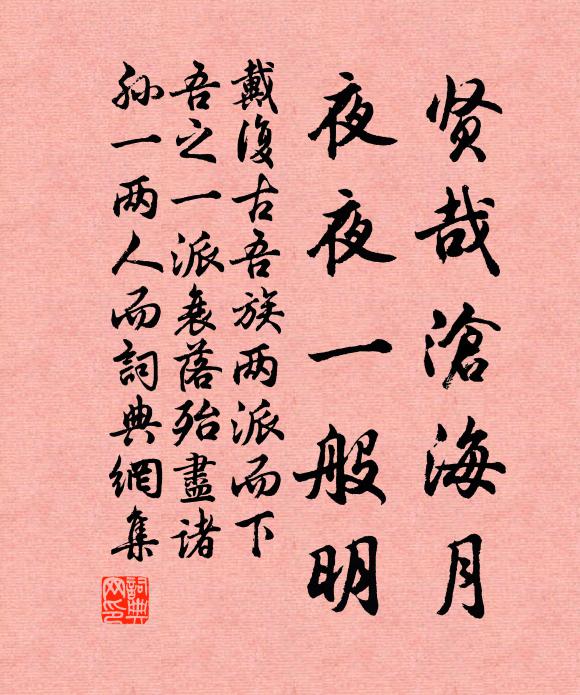 贤哉滄海月
夜夜一般明
戴復古吾族两派而下
吾之一派衰落殆盡诸
孙一两人而詞典網集
詞典
网印